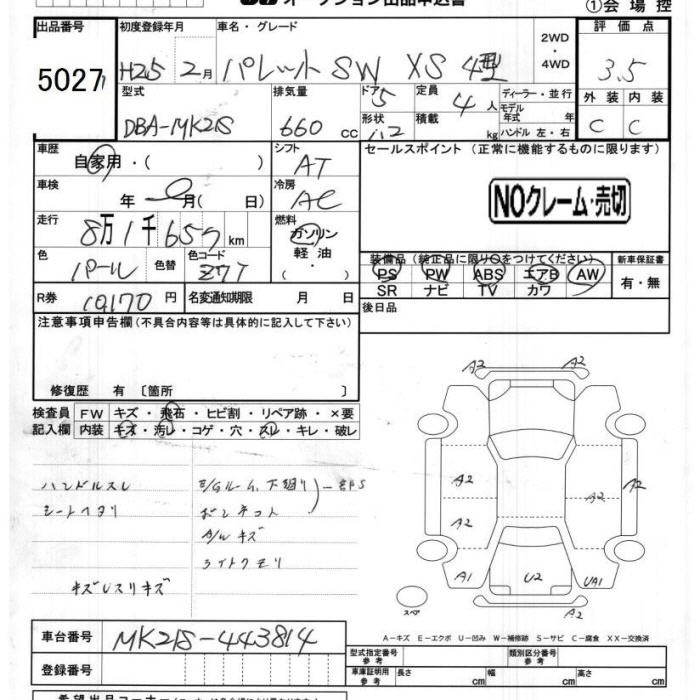 オークション出品申込書 ①会場控
出品番号 初度登録年月 車名・グレード 2WD・4WD 評価点
5027 H25 2月 パレット SW XS 4型 3.5
型式 排気量 ドア 定員 ディーラー・並行 外装 内装
DBA-MK21S 660 cc 5 4人 モデル年式 年 C C
形状 積載 kg ハンドル 左・右
車歴 自家用・( ) シフト AT セールスポイント (正常に機能するものに限ります)
車検 年 月( 日) 冷房 AC NOクレーム・売切
走行 8万1千657km 燃料 ガソリン 軽油・( )
色 パール 色替 色コード Z7T 装備品(純正品に限り○をつけてください) 新車保証書
PS PW ABS エアB AW 有・無
SR ナビ TV カワ
R券 10,170円 名変通知期限 月 日 後日品
注意事項申告欄(不具合内容等は具体的に記入して下さい)
修復歴 有 〔箇所 〕
検査員 FW キズ・飛石・ヒビ割・リペア跡・×要
記入欄 内装 キズ・汚レ・コゲ・穴・スレ・キレ・破レ
ハンドルスレ E/Gルーム、下廻り
シートヘタリ ボンネット
A/Wキズ
ライトクモリ
キズUスリキズ
A2 A2
A2 A2 A2
A2
A1 U2 UA1
スペア A2
A-キズ E-エクボ U-凹み W-補修跡 S-サビ C-腐食 XX-交換済
車台番号 MK21S-443814 型式指定番号 参考 類別区分番号 参考
登録番号 車庫証明用 参考 長さ cm 幅 cm 高さ cm